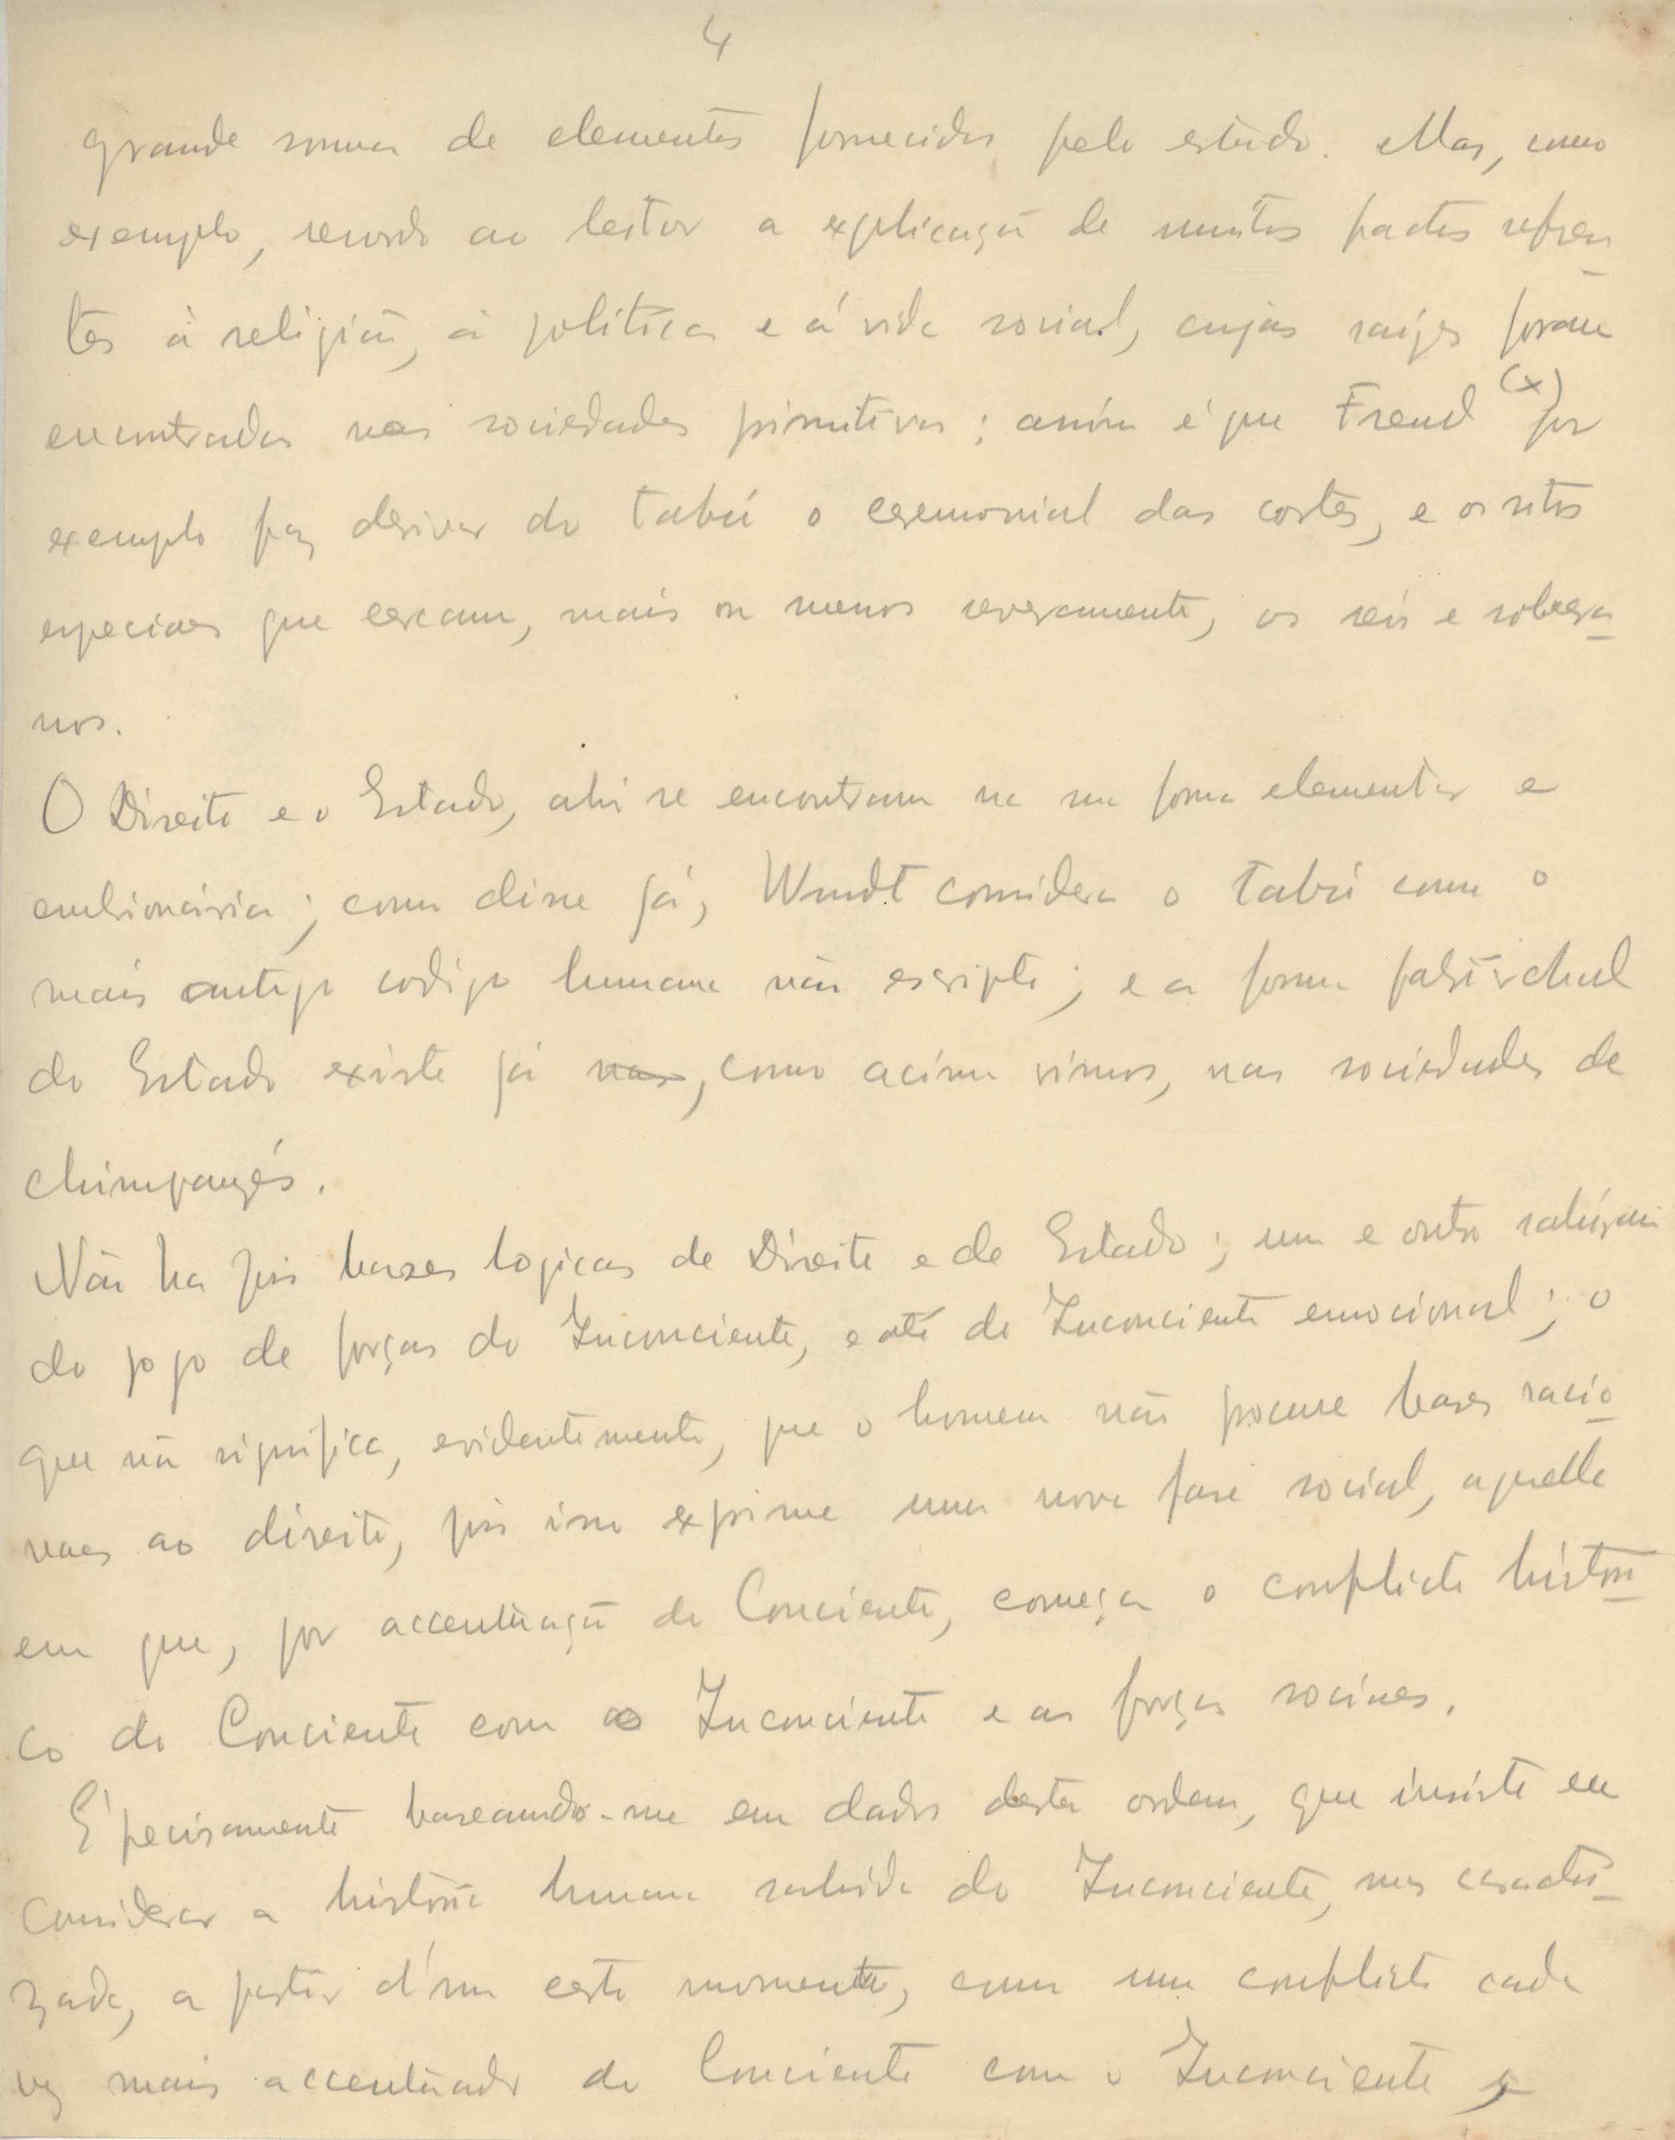 4
grande somma de elementos fornecidos pelo estudo. Mas, como
exemplo, recordo ao leitor a explicação de muitos factos referen
tes á religião, á politica e á vida social, cujas raizes foram
encontradas nas sociedades primitivas; assim é que Freud (x) por
exemplo faz derivar do tabú o ceremonial das cortes, e os ritos
especiaes que cercam, mais ou menos severamente, os reis e sobera
nos.
O Direito e o Estado, ahi se encontram na sua forma elementar e
embrionária; como disse já, Wundt considera o tabú como o
mais antigo codigo humano não escripto; e a forma patriarchal
do Estado existe já nas, como acima vimos, nas sociedades de
chimpanzés.
Não ha pois bases logicas do Direito e do Estado; um e outro sahiram
do jogo de forças do Inconciente, e até do Inconciente emocional; o
que não significa, evidentemente, que o homem não procure bases racio
naes ao direito, pois isso exprime uma nova fase social, aquella
em que, por accentuação do Conciente, começa o conflicto histori
co do Conciente com o Inconciente e as forças sociaes.
É precisamente baseando-me em dados desta ordem, que insisto em
considerar a história humana sahida do Inconciente, mas caracteri
zada, a partir d'um certo momento, como um conflicto cada
vez mais accentuado do Conciente com o Inconciente,